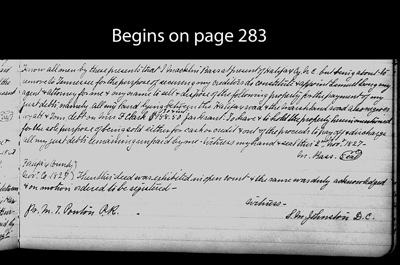 Begins on page 283
Know all men by these presents that I Macklin Hass of present of Halifax Co N.C. but being about to
remove to Tennessee for the purpose of securing my creditors do constitute & appoint Lemuel Long my
agent & attorney for me & in my name to sell & dispose of the following property for the payment of my
just debts namely all my land lying between the Halifax road & the marshland road also negroes
Wyatt & Tom debt on Wm F Clark $ for to have & to hold the property herein mentioned
for the sole purpose of being sold either for cash or credit & out of the proceeds to pay off & discharge
all my just debts remaining unpaid by me. Witness my hand & seal this 2nd Nov. 1827.
M. Hass. Seal
County
Nov. Ct. 1827 Then this deed was exhibited in open court & the same was duly acknowledged
& on motion ordered to be registered
Witness
Pr. M. T. Ponton P.R. S.M. Johnston D.C.